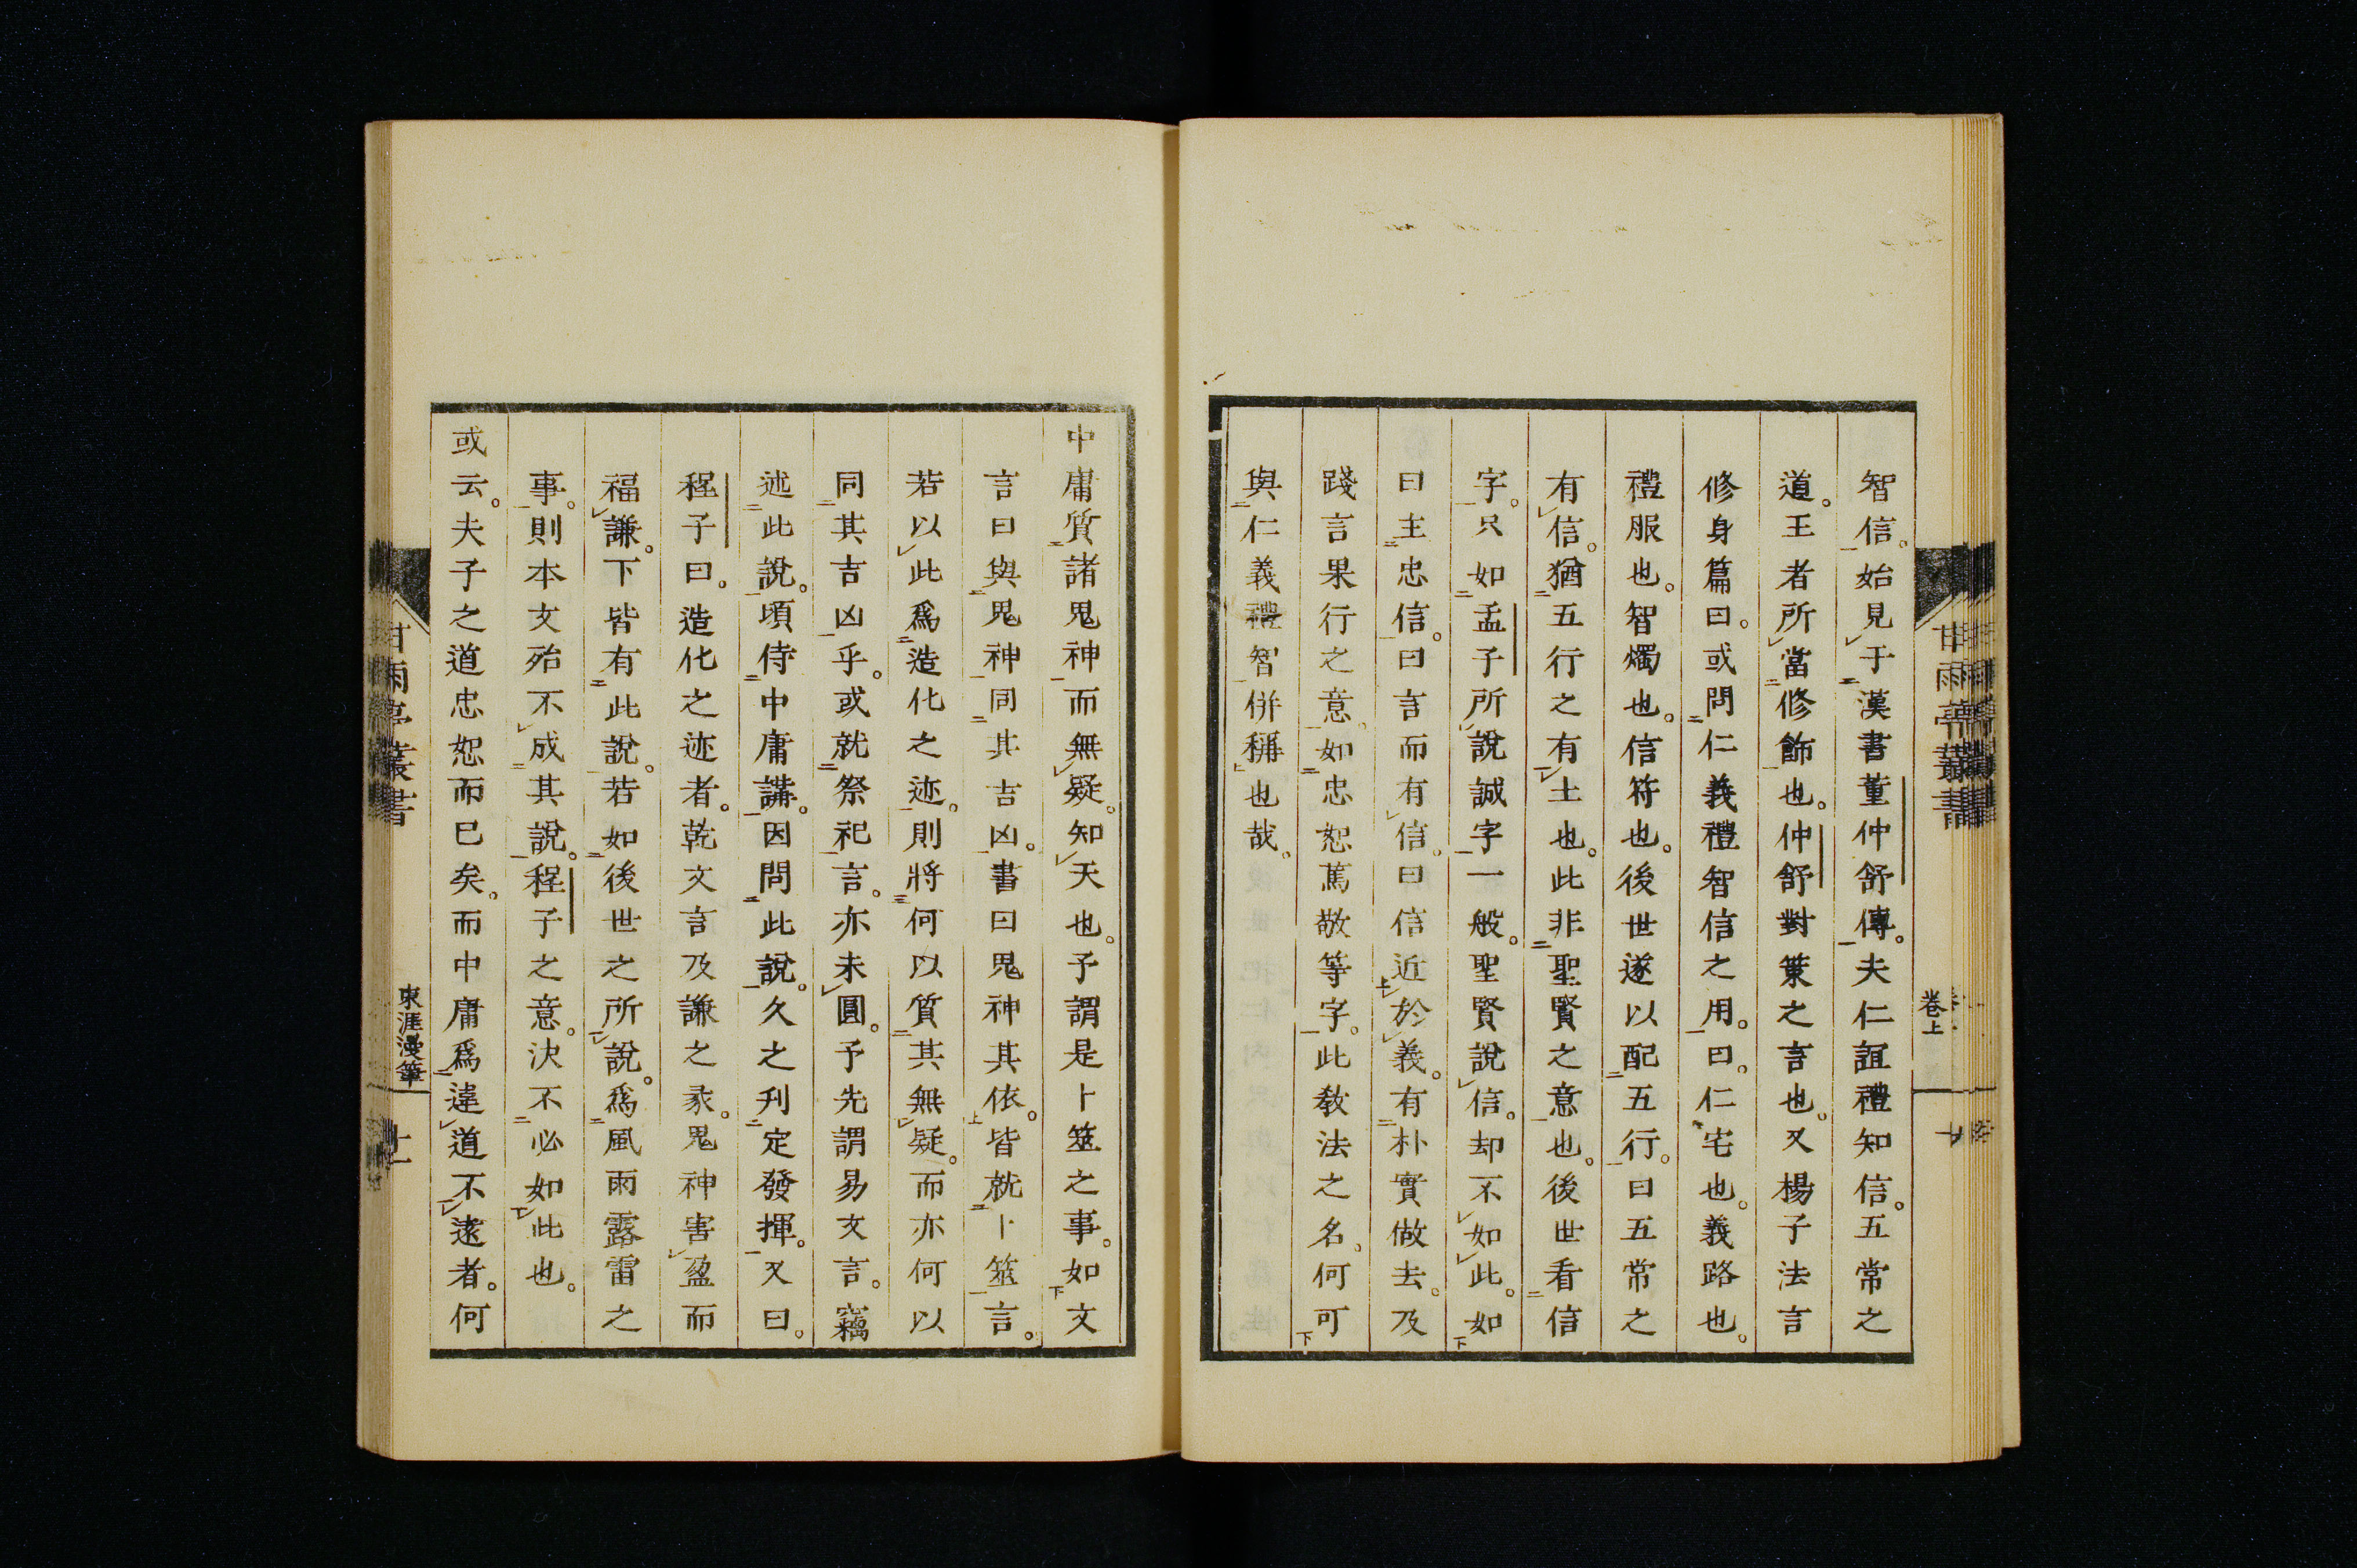 智信。始見于漢書董仲舒傳。夫仁誼禮知信。五常之
道。王者所當修飾也。仲舒對策之言也。又楊子法言
修身篇曰。或問仁義禮智信之用。曰。仁宅也。義路也。
禮服也。智燭也。信符也。後世遂以配五行。曰五常之
有信。猶五行之有土也。此非聖賢之意也。後世看信
字。只如孟子所說誠字一般。聖賢說信。却不如此。如
曰主忠信。曰言而有信。曰信近於義。有朴實做去。及
踐言果行之意。如忠恕篤敬等字。此教法之名。何可
與仁義禮智併稱也哉。
甘雨亭叢書
卷上
十
中庸質諸鬼神而無疑。知天也。予謂是卜筮之事。如文
言曰與鬼神同其吉凶。書曰鬼神其依。皆就卜筮言。
若以此爲造化之迹。則將何以質其無疑。而亦何以
同其吉凶乎。或就祭祀言。亦未圓。予先謂易文言。竊
述此說。頃侍中庸講。因問此說。久之刋定發揮。又曰。
程子曰。造化之迹者。乾文言及謙之彖。鬼神害盈而
福謙。下皆有此說。若如後世之所說。爲風雨露雷之
事。則本文殆不成其說。程子之意。決不必如此也。
或云。夫子之道忠恕而已矣。而中庸爲違道不遠者。何
甘雨亭叢書
東涯漫筆
十一